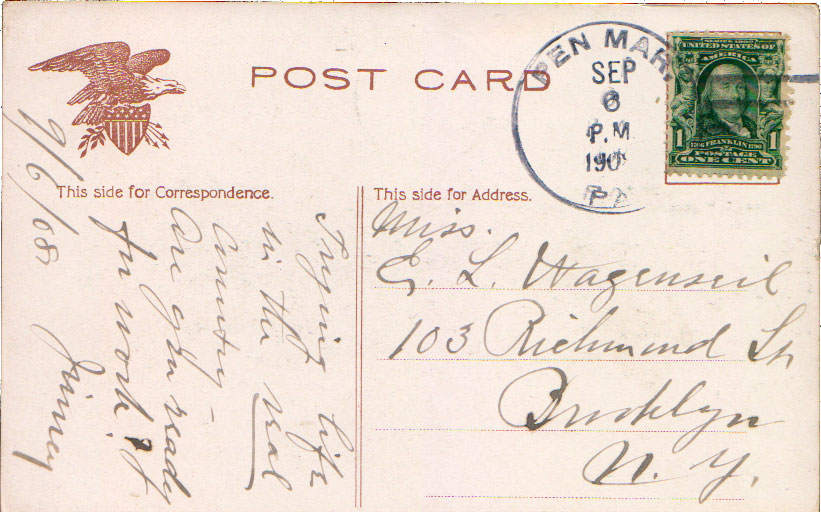 POST CARD
PEN MAR
SEP
6
P.M.
190
PA
SERIES 1902
UNITED STATES OF
AMERICA
1 1
1706 FRANKLIN 1790
POSTAGE
ONE CENT
This side for Correspondence.
9/6/08
Trying life
in the real
Country -
Are you ready
for work?
This side for Address.
Miss.
E. L. Wagenseil
103 Richmond St
Brooklyn
N. Y.